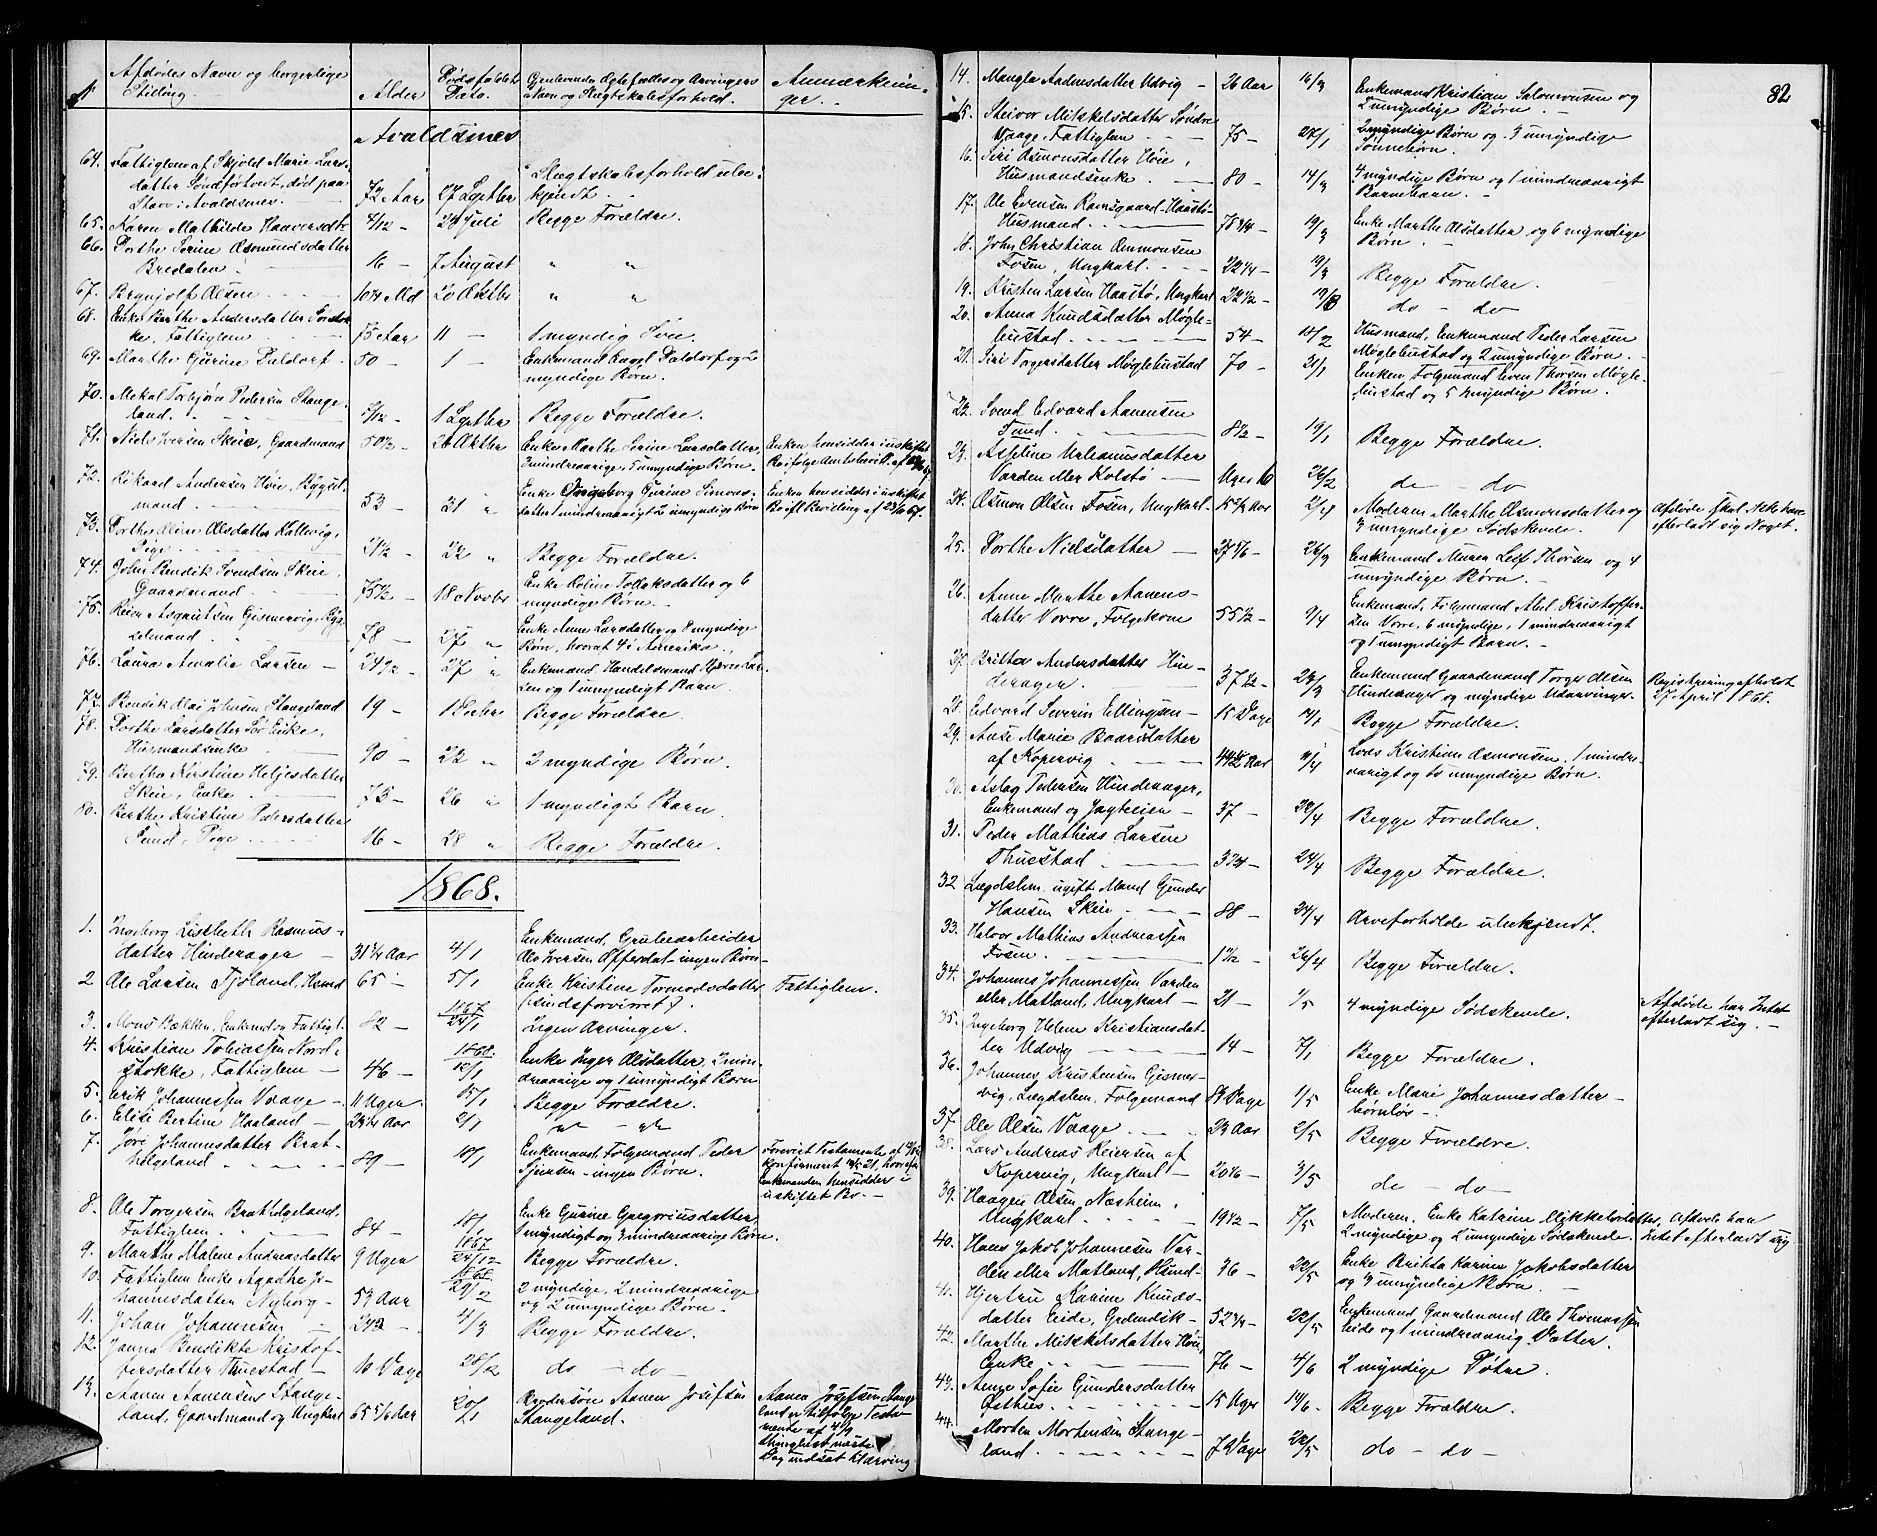 82
№ Afdødes Navn og borgerlige Stilling. Alder Dødsfaldets Dato. Gjenlevende Ægtefælles og Arvingers Navn og Slægtskabsforhold. Anmærkninger.
Avaldsnes
64. Fattiglem af Skjold Marie Lars-
datter Søndførtveit, død paa
Stave i Avaldsnes. 72 Aar 27 Septbr Slægtskabsforhold ube-
kjendt.
65. Karen Mathilde Haaversdtr 4/12 — 28 Juli Begge Forældre.
66. Dorthe Serine Asmundsdatter
Bredalen. 16 — 7 August " "
67. Brynjolf Olsen 10¼ Md 20 Oktbr " "
68. Enke Berthe Andersdatter Sørstok-
ke, Fattiglem 75 Aar 11 — 1 myndig Søn.
69. Marthe Gurine Daldorf 50 — 1 — Enkemand Engel Daldorf og 2
myndige Børn.
70. Mekal Torbjørn Pedersen Stange-
land. 5/12 — 1 Septbr Begge Forældre.
71. Niels Iversen Skeie, Gaardmand 50½ — 26 Oktbr Enke Marthe Serine Larsdatter,
3 mindreaarige, 5 umyndige Børn. Enken hensidder i uskiftet
Bo ifølge Amtsbevill. af
72. Rikard Andersen Høie, Bygsel-
mand 53 — 31 " Enke Ingeborg Gurine Simons-
datter 1 mindreaarigt 2 umyndige Børn Enken hensidder i uskiftet
Bo ifl. Bevilling af 23/11 67.
73. Dorthe Oline Olsdatter Kallevig,
Pige 21½ — 22 " Begge Forældre.
74. John Bendik Svendsen Skeie,
Gaardmand 75½ — 18 Novbr Enke Eline Tollaksdatter og 6
myndige Børn.
75. Reier Asgautsen Gismervig, Byg-
selmand 78 — 27 " Enke Anne Larsdatter og 8 myndige
Børn, hvoraf 4 i Amerika.
76. Laura Amalia Larsen — 24½ — 27 " Enkemand, Handelsmand Lar-
sen og 1 umyndigt Barn.
77. Bendik Olai Johnsen Stangeland 19 — 1 Decbr Begge Forældre.
78. Dorthe Larsdatter Sør Eike,
Husmandsenke 90 — 22 " 2 myndige Børn.
79. Bertha Kirstine Heljesdatter
Skeie, Enke 73 — 26 " 1 myndigt Barn.
80. Berthe Kristine Pedersdatter
Sund, Pige 16 — 28 " Begge Forældre.
1868.
1. Ingeborg Lisebeth Rasmus-
datter Hinderager — 31¼ Aar 4/1 Enkemand, Grubearbeider
Ole Iversen Offerdal — ingen Børn —
2 Ole Larsen Tjøland, Husmd 65 — 5/1 Enke Kristine Tormodsdatter
(sindsforvirret). Fattiglem.
3. Mons Bækken, Enkemd og Fattigl. 82 — 1867 24/1 Ingen Arvinger.
4. Kristian Tobiassen Nord-
stokke, Fattiglem — 46 — 1868 12/1 Enke Inger Olsdatter, 2 min-
dreaarige og 1 umyndigt Børn
5. Erik Johannessen Vaage — 11 Uger 15/1 Begge Forældre.
6. Elise Bertine Haaland — 23¼ Aar 21/1 do — do
7. Jøri Johannesdatter Brat-
helgeland 89 — 18/1 Enkemand, Folgemand Peder
— ingen Børn. Testamente af
konfirmeret
Enkemanden hensidder i
uskiftet Bo. —
8. Ole Torgersen Brathelgeland,
Fattiglem 84 — 18/1 Enke Gurine Gregoriusdatter,
1 myndigt og 3 mindreaarige Børn.
9. Marthe Malene Andreasdatter 9 Uger 1867 24/12 Begge Forældre.
10. Fattiglem Enke Agathe Jo-
hannesdatter Nyborg — 53 Aar 1868 29/2 2 myndige, 2 mindreaarige
og 2 umyndige Børn.
11. Johan Johannesen 24½ — 4/3 Begge Forældre.
12. Janna Bendikte Kristof-
fersdatter Thuestad — 16 Dage 28/2 do — do —
13. Aanen Aanensen Stange-
land, Gaardmand og Ungkarl 65 5/6 Aar 20/1 Brodersøn Aanen Josefsen
Stangeland. Aanen Josefsen Stange-
land er tilfølge Testa-
mente af 4/9
thinglæst næste
Dag indsat til Arving
14. Mangla Aadnesdatter Udvig — 26 Aar 16/3 Enkemand Kristian Salomonsen og
2 umyndige Børn. —
15. Steivor Mikkelsdatter Søndre
Vaage, Fattiglem 75 — 27/1 2 myndige Børn og 3 umyndige
Sønnebørn.
16. Siri Osmonsdatter Høie,
Husmandsenke — 80 — 14/3 4 myndige Børn og 1 mindreaarigt
Barnebarn. —
17. Ole Evensen Ramsgaard-Haastø
Husmand 78¾ — 19/3 Enke Marthe Olsdatter og 6 myndige
Børn. —
18. John Christian Ommonsen
Fosen, Ungkarl 22¼ — 19/3 Begge Forældre.
19. Kristen Larsen Haastø, Ungkarl 22½ — 19/3 do — do
20. Anna Knudsdatter Møgle-
bustad 54 — 15/2 Husmand, Enkemand Peder Larsen
Møglebustad og 2 umyndige Børn. —
21. Siri Torgersdatter Møglebustad 70 — 31/1 Enkem. Folgemand Even Thorsen Møgle-
bustad og 5 myndige Børn.
22. Svend Edvard Aanensen
Sund 8½ — 19/1 Begge Forældre.
23. Asseline Urianusdatter
Varden eller Kolstø — Uger 16 26/2 do — do
24. Osmon Olsen Fosen, Ungkarl 15¾ Aar 2/4 Moderen Marthe Osmonsdatter og
3 umyndige Sødskende. Afdøde skal ikke have
efterladt sig Noget.
25. Dorthe Nielsdatter 37 5/6 — 26/3 Enkemand Murer Leif Thorsen og 4
umyndige Børn. —
26. Anne Marthe Aanens-
datter Vorre, Folgekone 55½ — 9/4 Enkemand, Folgemand Abel Kristoffer-
sen Vorre, 6 myndige, 1 mindreaarigt
og 1 umyndigt Barn. —
27. Britha Andersdatter Hin-
derager. 37½ — 28/3 Enkemand Gaardmand Torger Olsen
Hinderager og myndige Udarvinger. Registrering afholdt
27 April 1868.
28. Edvard Severin Ellingsen — 15 Dage 14/1 Begge Forældre.
29. Anne Marie Baarsdatter
af Kopervig Aar 9/4 Lods Kristian Osmonsen, 1 mindre-
aarigt og to umyndige Børn.
30. Aslag Pedersen Hinderager,
Enkemand og 37 — 22/4 Begge Forældre.
31. Peder Mathias Larsen
Thuestad 24/4 Begge Forældre.
32 Lægdslem, ugift Mand Gunder
Hansen Skeie 88 — 24/4 Arveforholde ubekjendt.
33. Halvor Mathias Andreassen
Fosen 1½ — 26/4 Begge Forældre.
34. Johannes Johannessen Varden
eller Matland, Ungkarl — 21 — 1/5 4 myndige Sødskende. Afdøde har Intet
efterladt sig. —
35. Ingeborg Helene Kristiansdat-
ter Udvig 14 — 7/1 Begge Forældre.
36. Johannes Kristensen Gismer-
vig, Lægdslem, Folgemand Dage 1/5 Enke Mari Johannesdatter —
børnløs —
37 Ole Olsen Vaage 23 Aar 2/5 Begge Forældre.
38. Lars Andreas Reiersen af
Kopervig, Ungkarl — 20⅙ — 3/5 do — do —
39. Haagen Olsen Næsheim,
Ungkarl 19½ — 7/5 Moderen, Enke Katrine Mikkelsdatter,
2 myndige og 2 umyndige Sødskende. Afdøde har
Intet efterladt sig
40. Hans Jakob Johannesen Var-
den eller Matland, 36 — 22/5 Enke Karine Jakobsdatter
og 3 umyndige Børn.
41. Hjertru Karine Knuds-
datter Eide, 52¼ — 22/5 Enkemand Gaardmand Ole Thomassen
Eide og 1 mindreaarig Datter.
42. Marthe Mikkelsdatter Høie,
Enke 76 — 4/6 2 myndige Døtre.
43. Anne Sofie Gundersdatter
Østhus 15 Uger 14/6 Begge Forældre.
44. Morten Mortensen Stange-
land Dage 22/5 do — do —